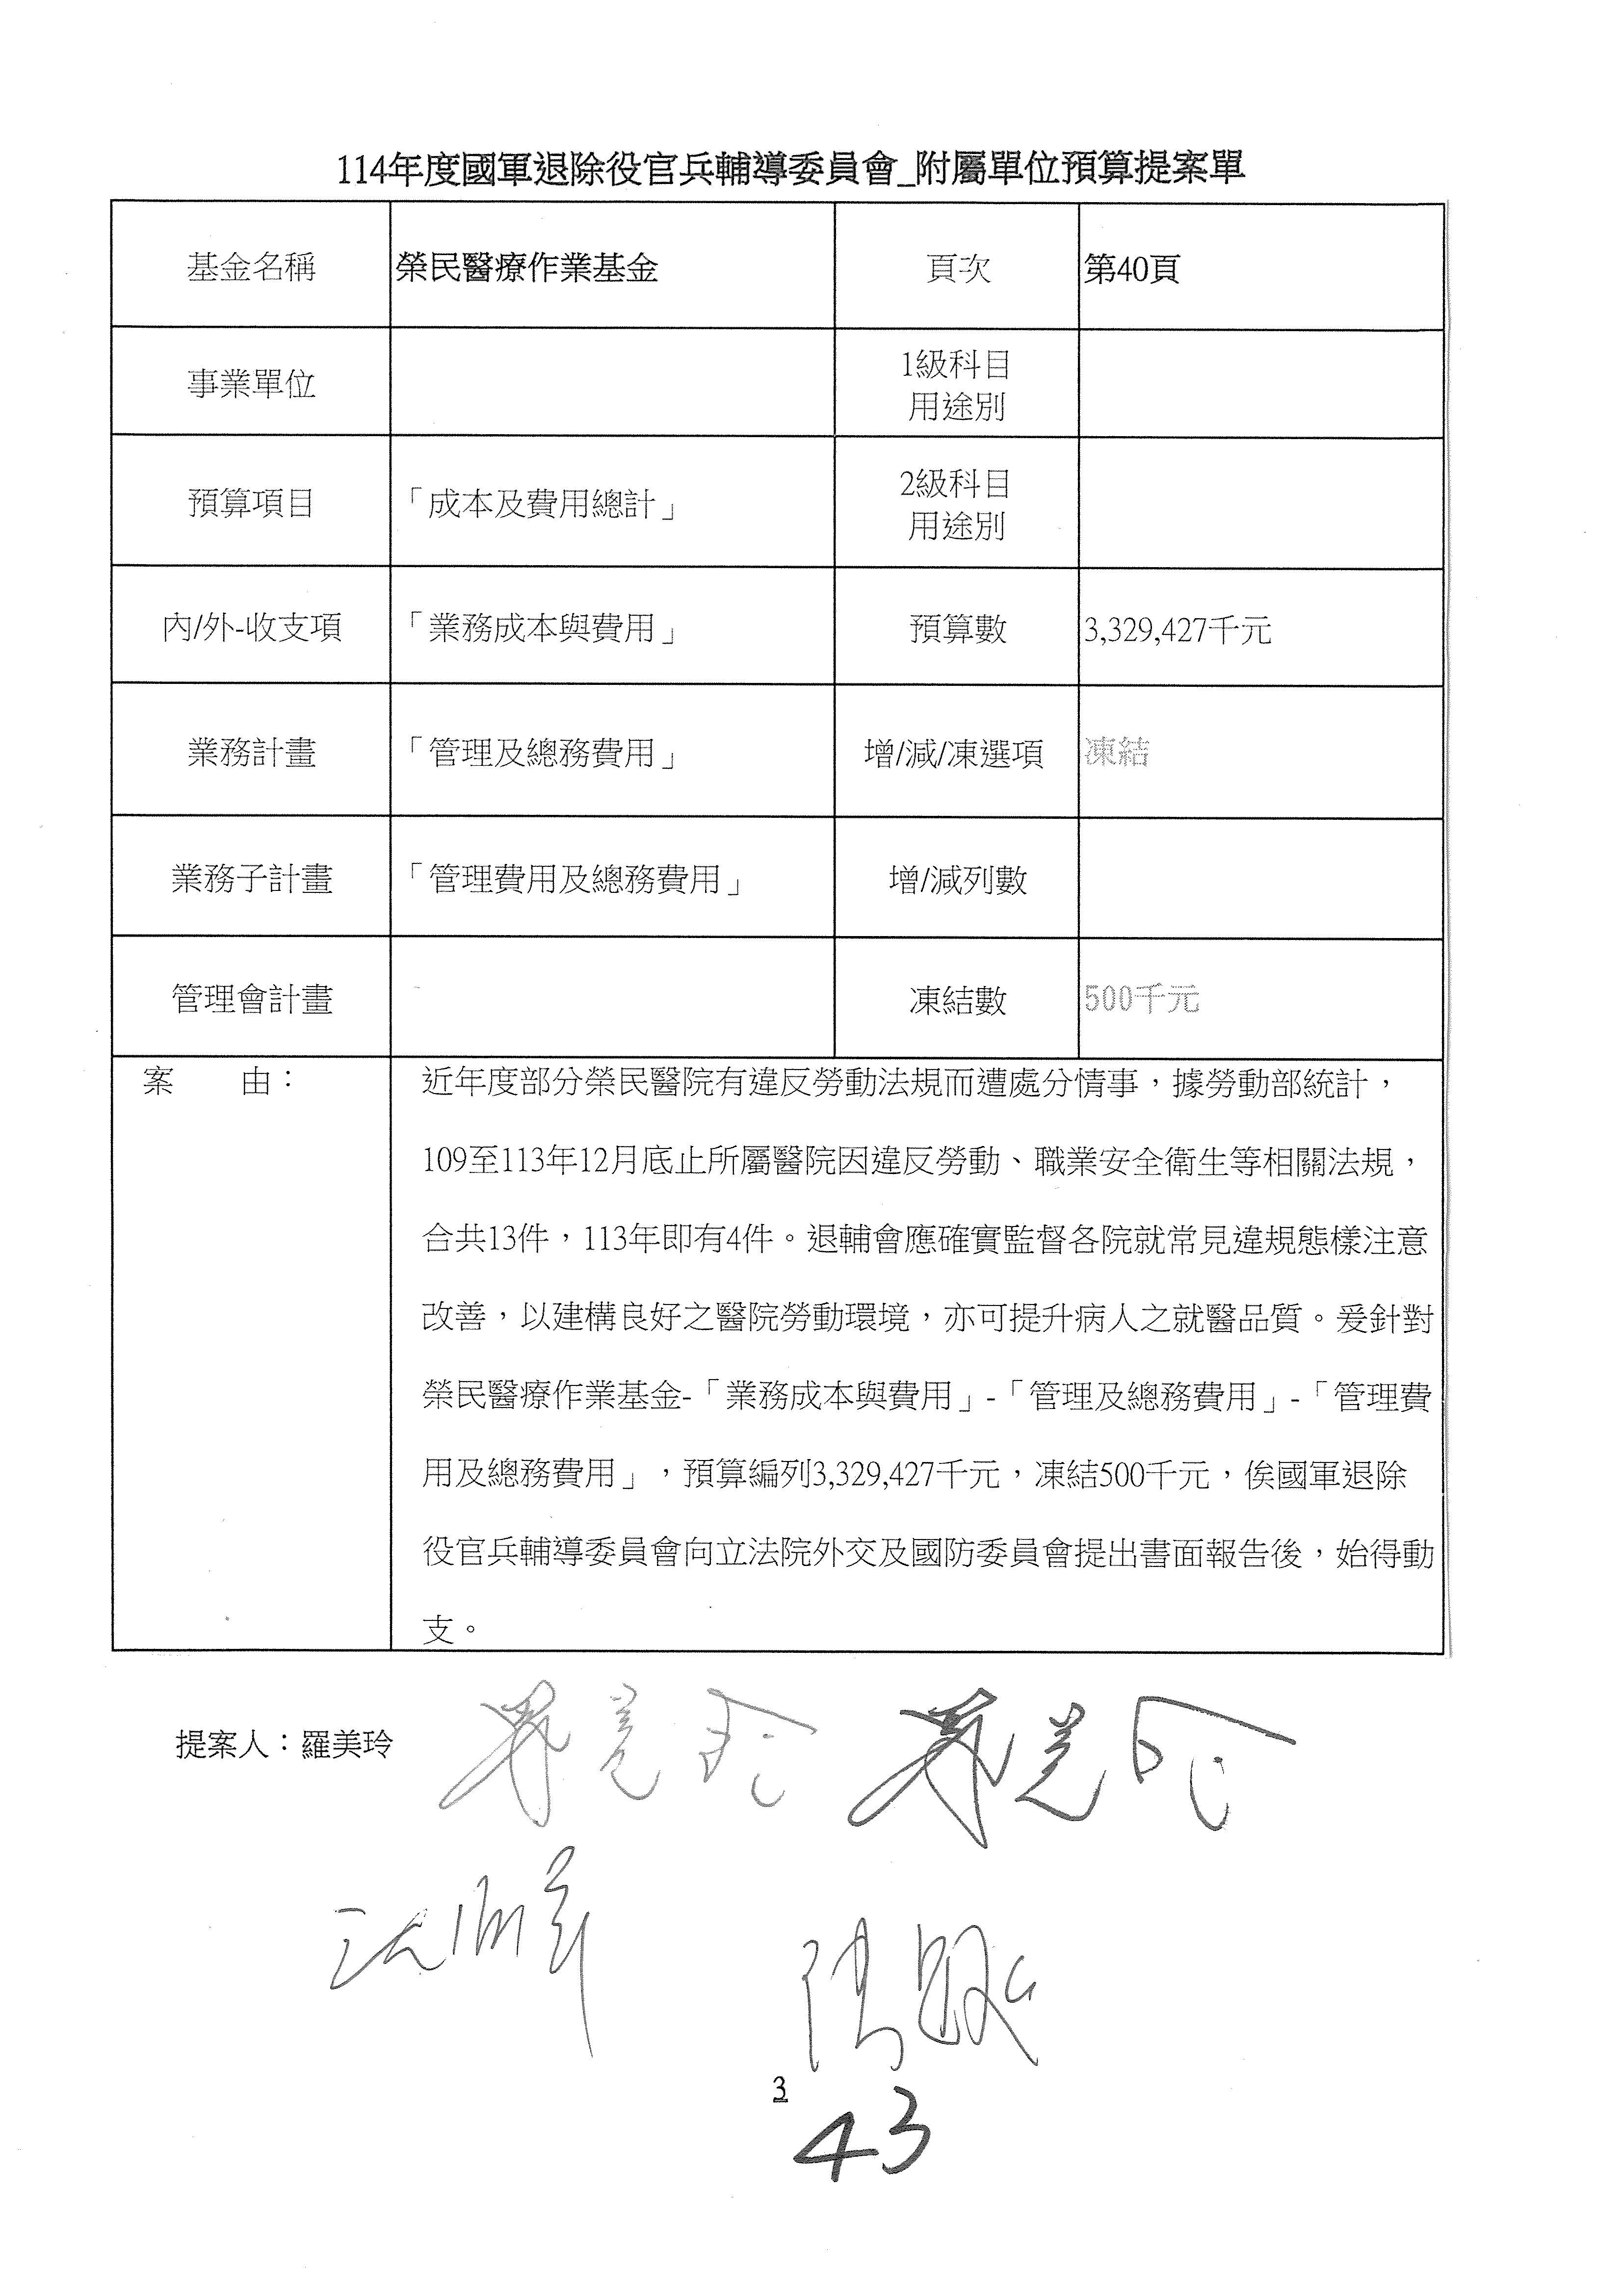 114年度國軍退除役官兵輔導委員會_附屬單位預算提案單
基金名稱 榮民醫療作業基金 頁次 第40頁
事業單位 1級科目
用途別
預算項目 「成本及費用總計」 2級科目
用途別
內/外-收支項 「業務成本與費用」 預算數 3,329,427千元
業務計畫 「管理及總務費用」 增/減/凍選項 凍結
業務子計畫 「管理費用及總務費用」 增/減列數
管理會計畫 凍結數 500千元
案 由：
近年度部分榮民醫院有違反勞動法規而遭處分情事，據勞動部統計，
109至113年12月底止所屬醫院因違反勞動、職業安全衛生等相關法規，
合共13件，113年即有4件。退輔會應確實監督各院就常見違規態樣注意
改善，以建構良好之醫院勞動環境，亦可提升病人之就醫品質。爰針對
榮民醫療作業基金-「業務成本與費用」-「管理及總務費用」-「管理費
用及總務費用」，預算編列3,329,427千元，凍結500千元，俟國軍退除
役官兵輔導委員會向立法院外交及國防委員會提出書面報告後，始得動
支。
提案人：羅美玲 羅美玲 羅美玲
3
43